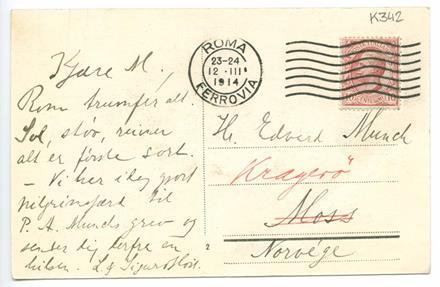 K342
ROMA
23-24
12·III
1914
FERROVIA
Kjære M.,
Rom trumfer alt.
Sol, støv, ruiner
alt er første sort.
— Vi har idag gjort
pilgrimsfærd til
P. A. Munchs grav og
sender dig derfra en
hilsen. L. & Sigurd Høst.
2
Hr. Edvard Munch
Kragerø
Moss
Norvége